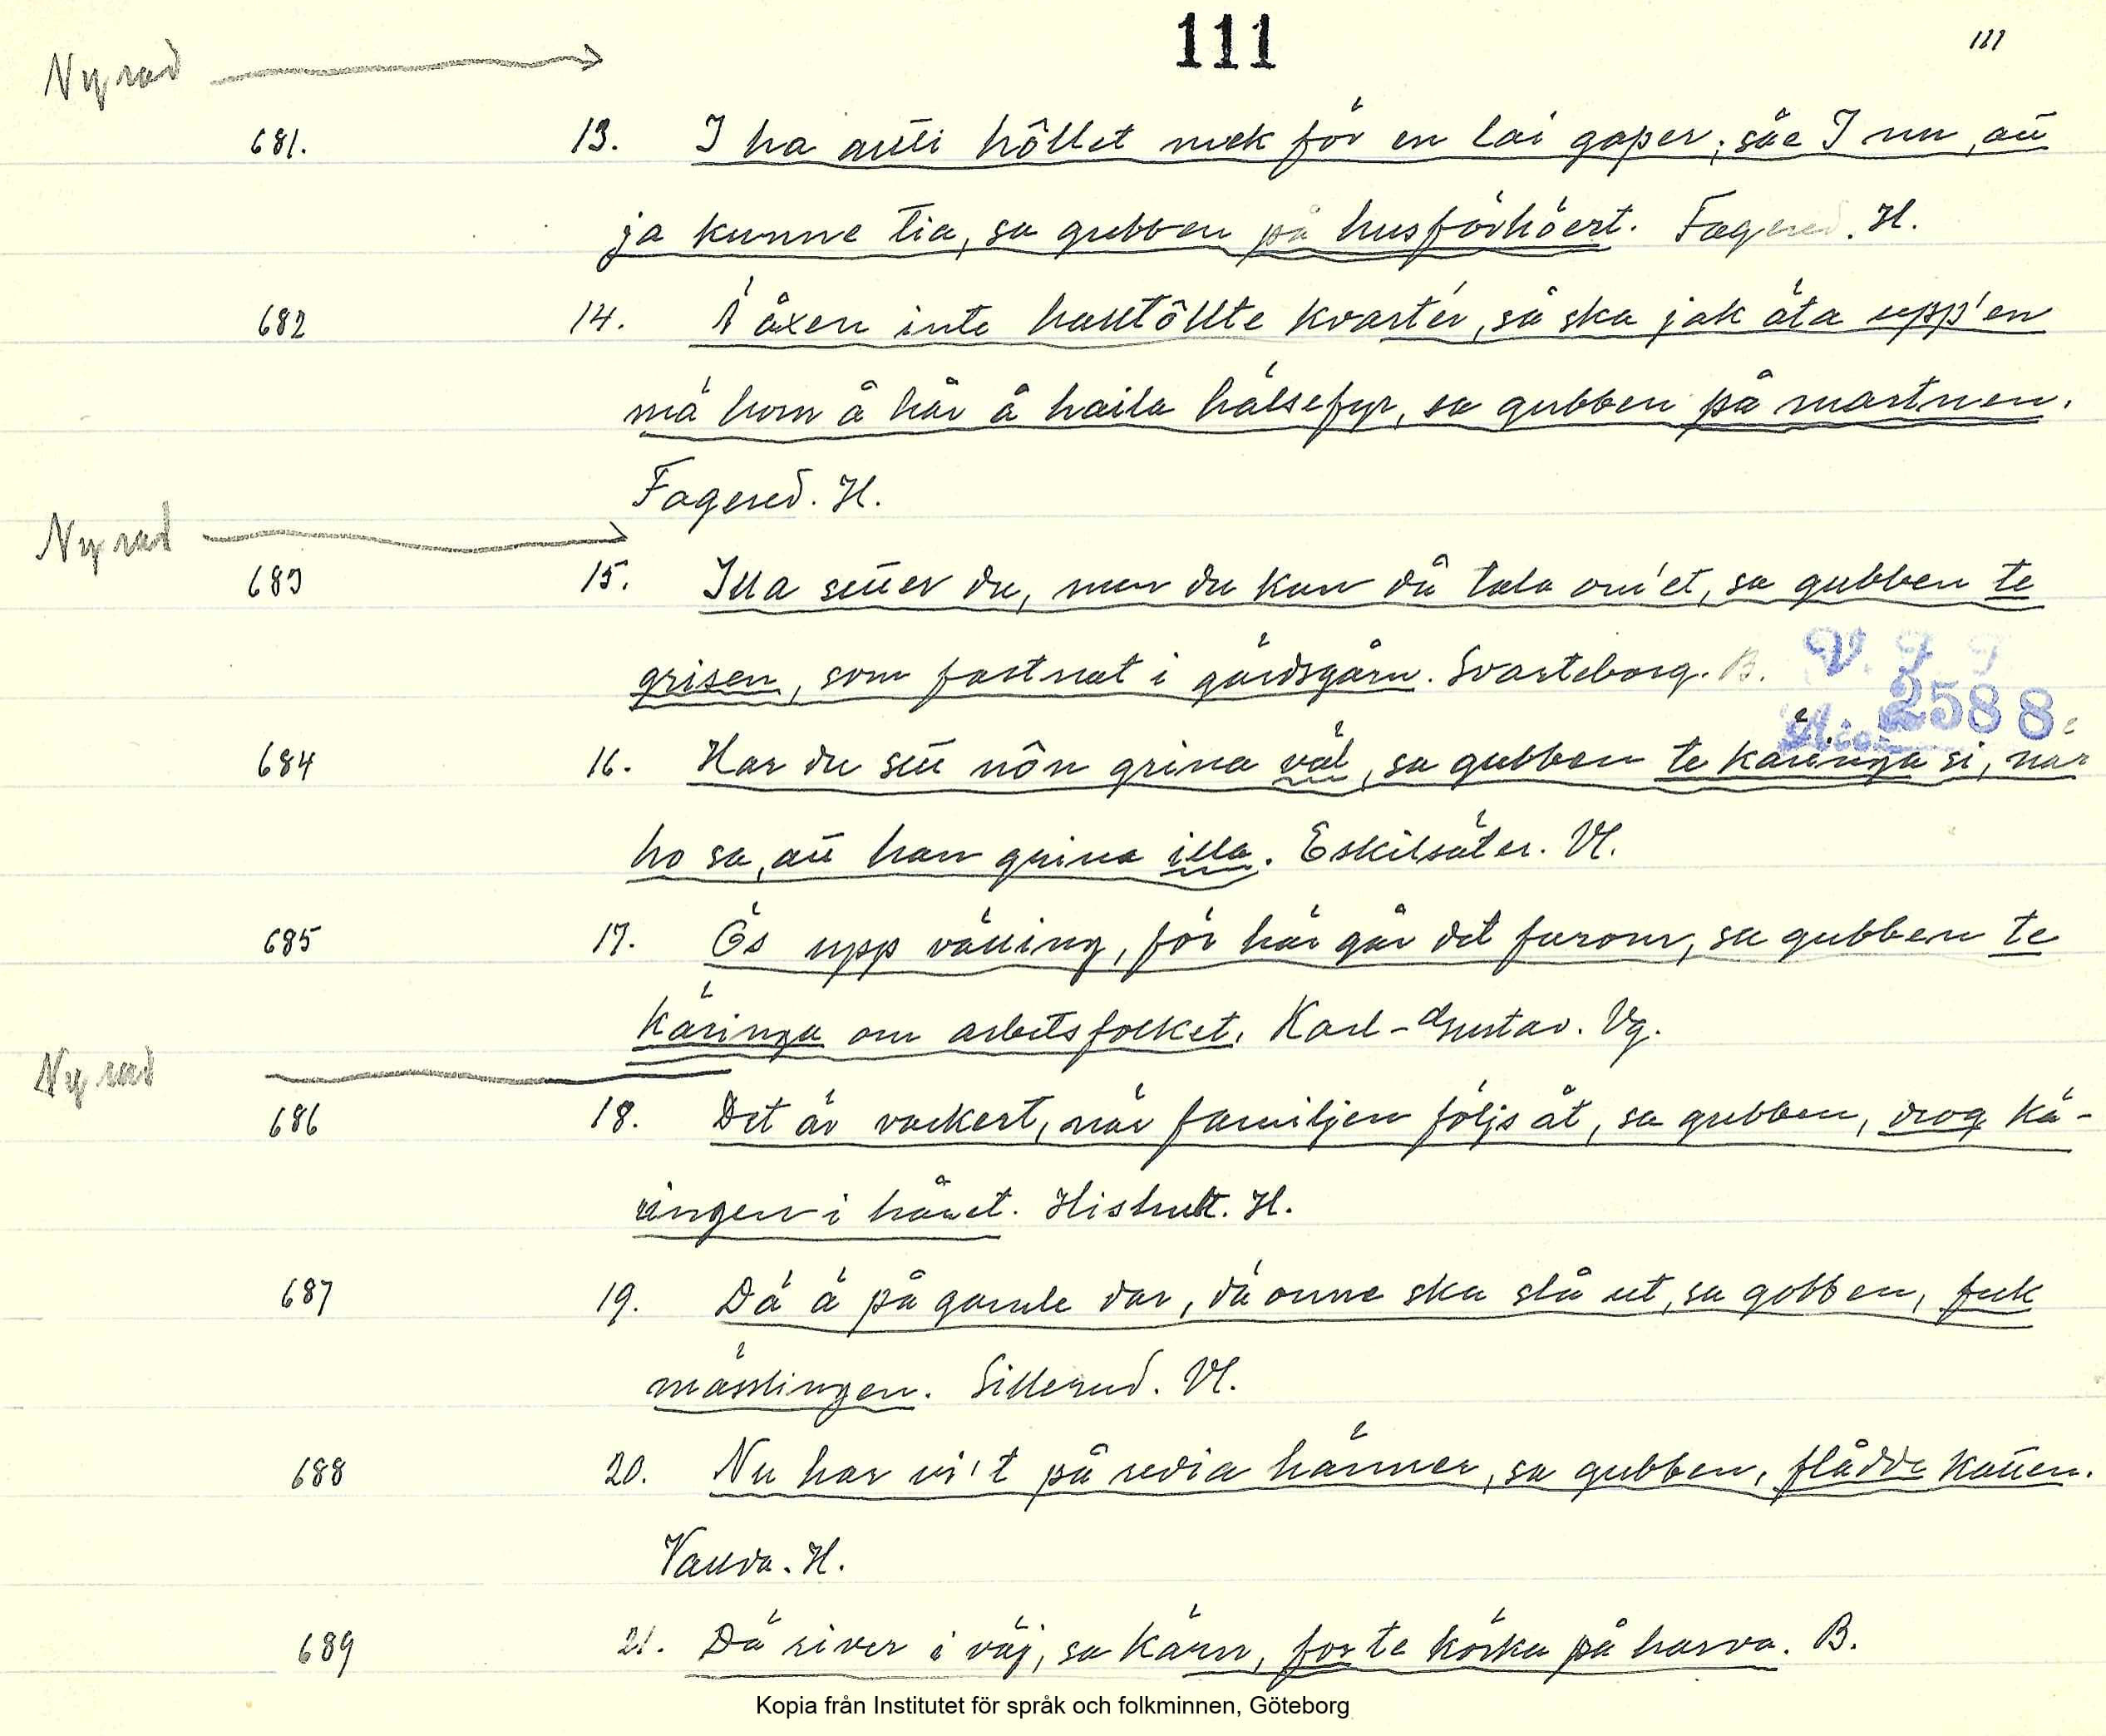 111
111
Ny rad
681. 13. I ha auti hôllet mek för en lai gaper; såe I nu, att
ja kunne tia, sa gubben på husförhöert. Fagered. H.
682 14. Ä åxen inte halltôllte kvartér, så ska jak äta upp'en
mä horn å hår å haila hälsefyr, sa gubben på martnen.
Fagered. H.
Ny rad
683 15. Illa sitter du, men du kan då tala om'et, sa gubben te
grisen, som fastnat i gärdsgårn. Svarteborg. B.
V. F. F.
2588
684 16. Har du sitt nôn grina väl, sa gubben te käringa si, när
ho sa, att han grina illa. Eskilsäter. Vl.
685 17. Ös upp välling, för här går det farom, sa gubben te
käringa om arbetsfolket. Karl-Gustav. Vg.
Ny rad
686 18. Det är vackert, när familjen följs åt, sa gubben, drog kä-
ringen i håret. Hishult. H.
687 19. Dä ä på gamle dar, dä onne ska slå ut, sa gobben, feck
mässlingen. Sillerud. Vl.
688 20. Nu har vi't på redia hänner, sa gubben, flådde katten.
Valda. H.
689 21. Dä river i väj, sa kärn, for te körka på harva. B.
Kopia från Institutet för språk och folkminnen, Göteborg